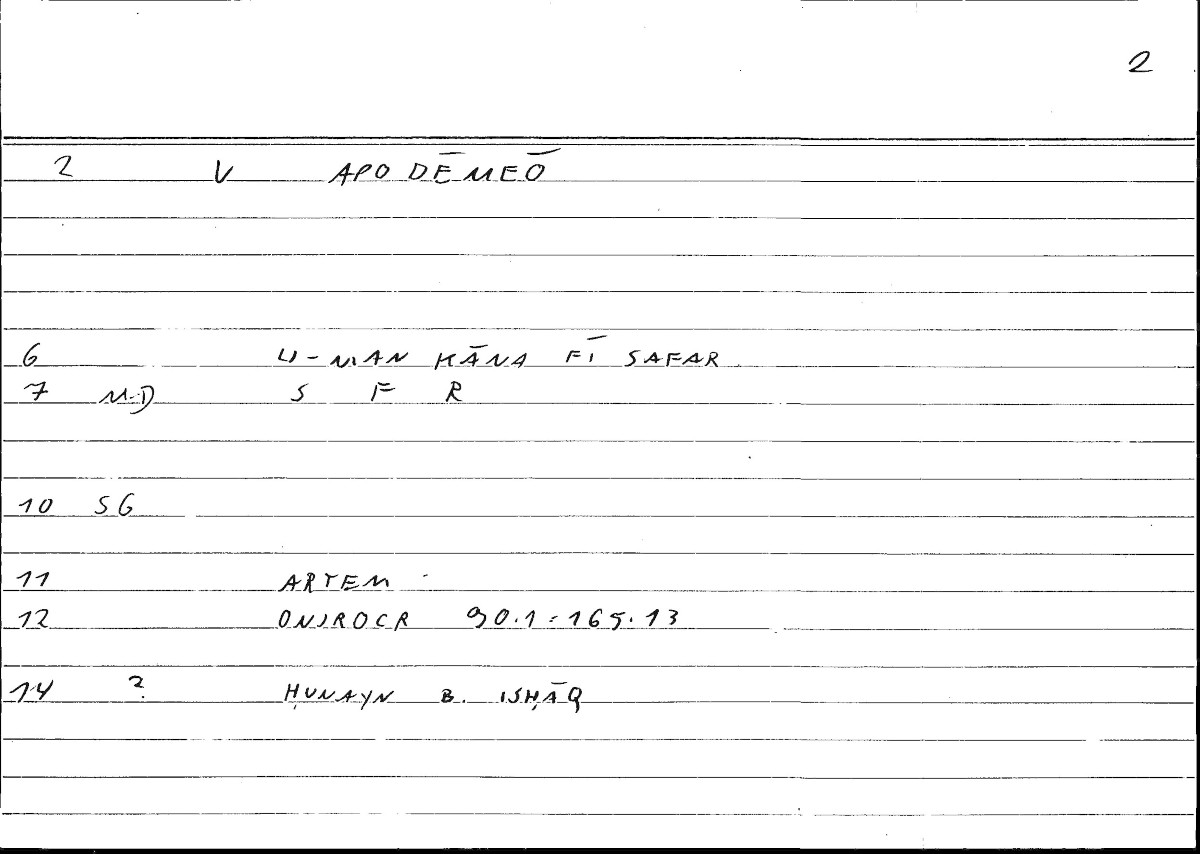 2
2 V APODĒMEŌ
6 LI-MAN KĀNA FĪ SAFAR
7 MD S F R
10 SG
11 ARTEM
12 ONIROCR 90.1 = 165.13
14 ? ḤUNAYN B. ISḤĀQ